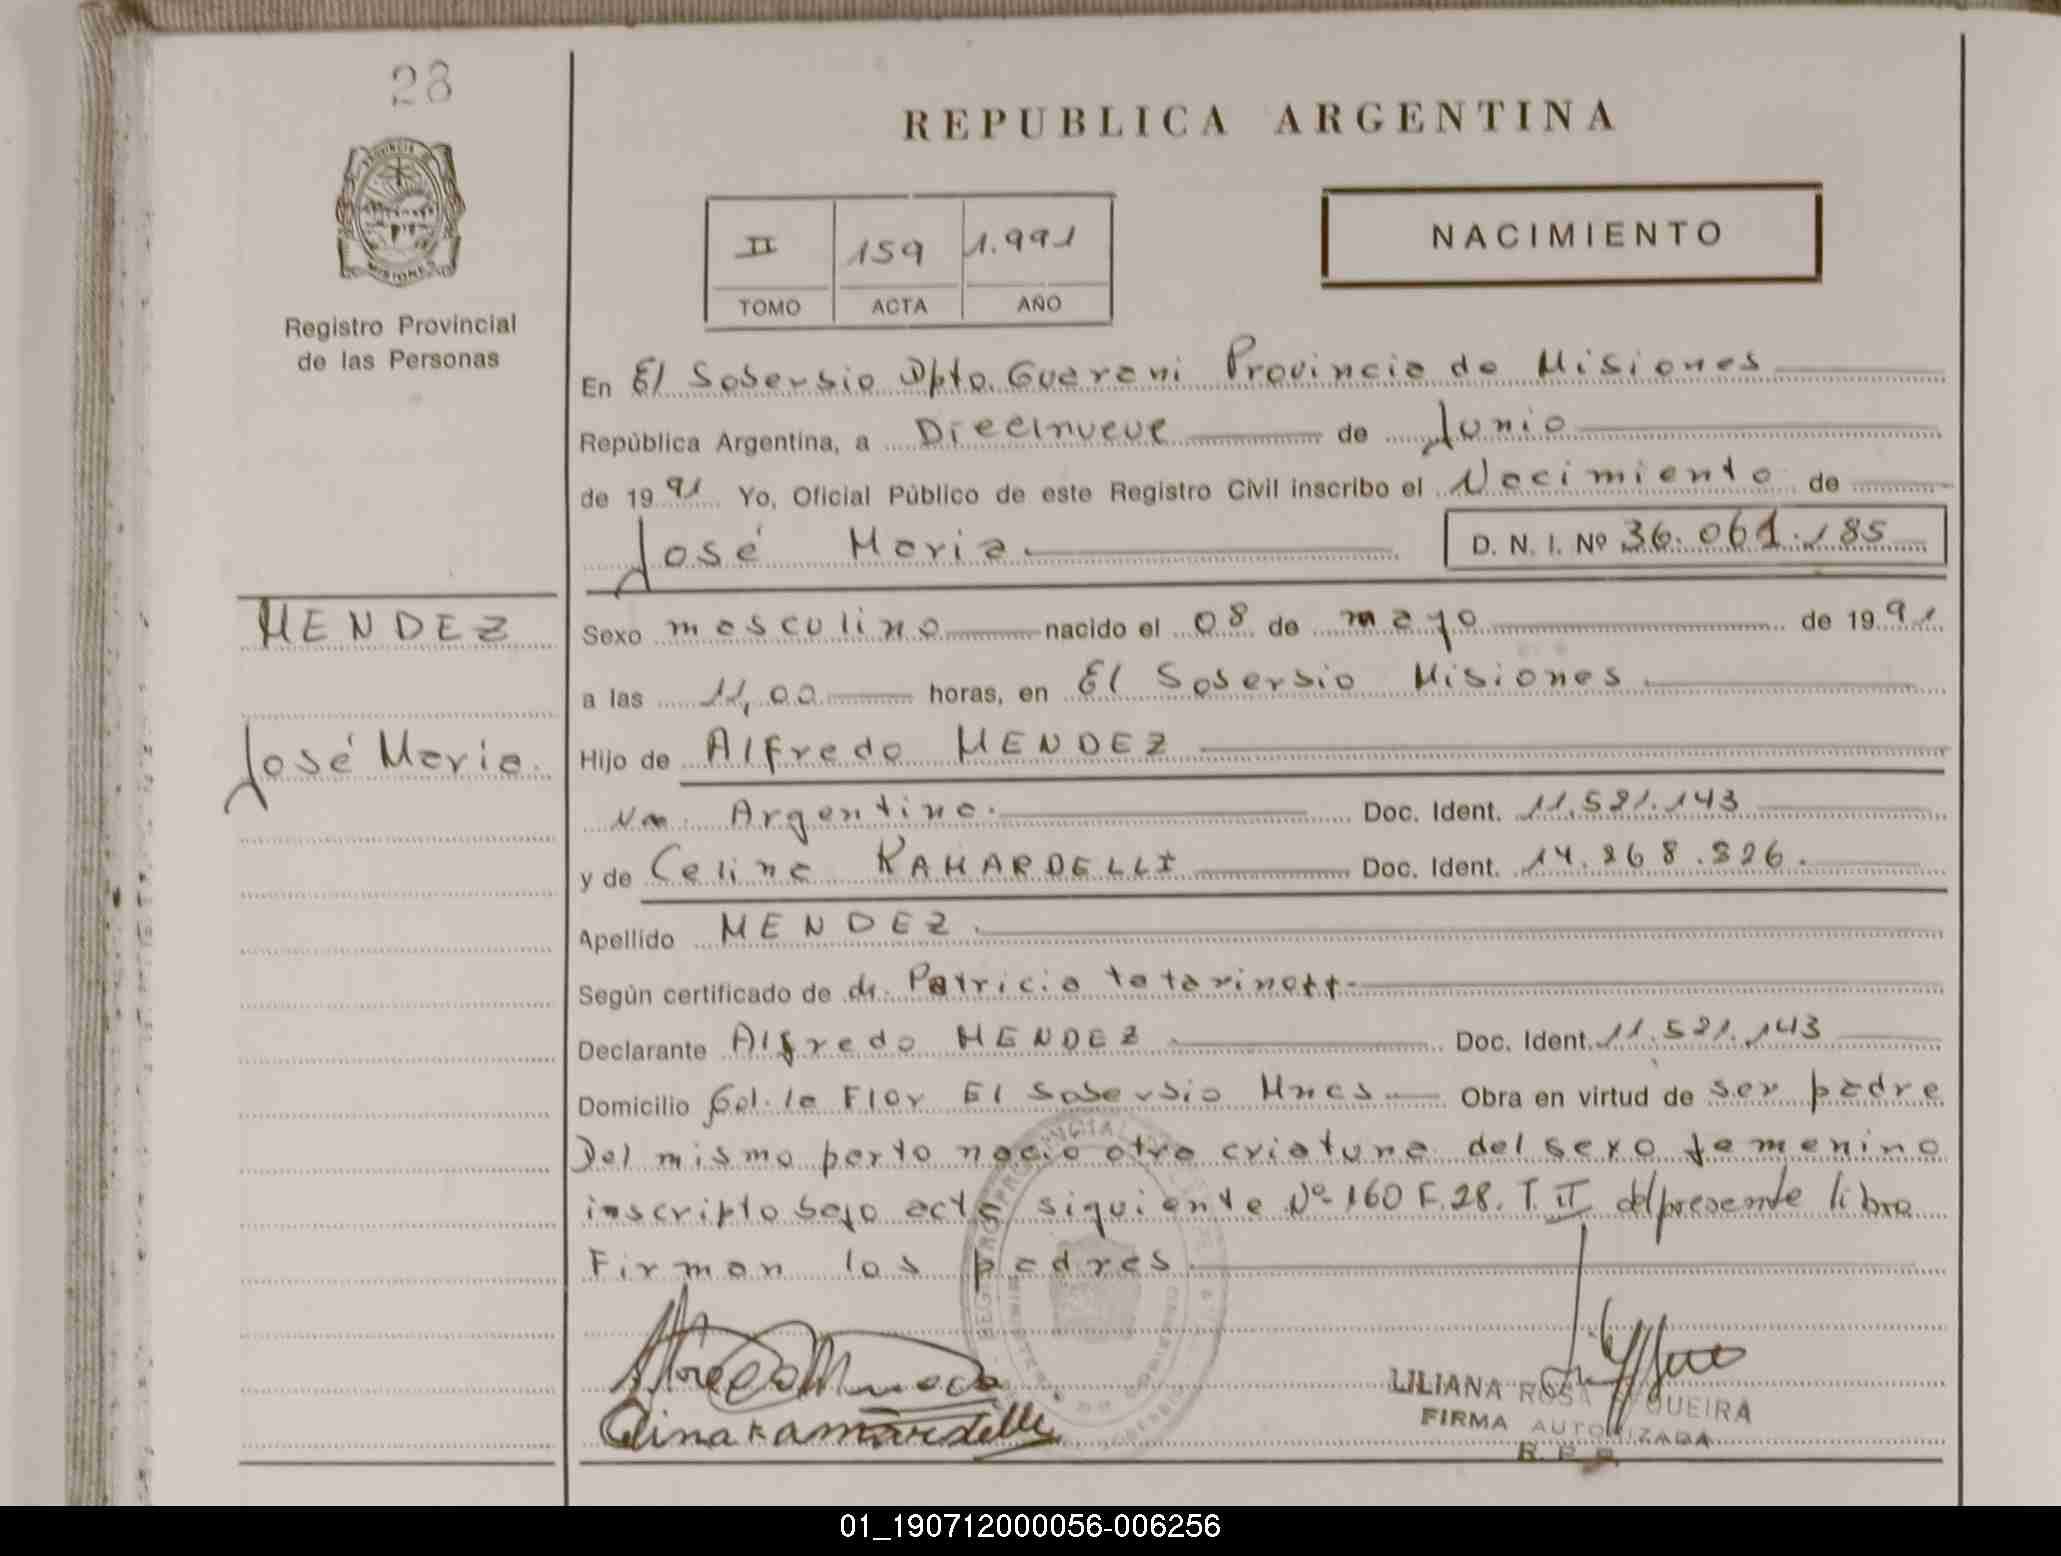 28
REPUBLICA ARGENTINA
II 159 1.991
TOMO ACTA AÑO
NACIMIENTO
Registro Provincial
de las Personas
En El Soberbio Dpto. Guarani Provincia de Misiones
República Argentina, a Diecinueve de Junio
de 1991 Yo, Oficial Público de este Registro Civil inscribo el Nacimiento de
José Maria D. N. I. Nº 36.061.185
MENDEZ
José Maria.
Sexo masculino nacido el 08 de mayo de 1991
a las 11,00 horas, en El Soberbio Misiones
Hijo de Alfredo MENDEZ
Na. Argentina. Doc. Ident. 11.521.143
y de Celina KAMARDELLI Doc. Ident. 14.268.826.
Apellido MENDEZ.
Según certificado de dr. Patricio
Declarante Alfredo MENDEZ Doc. Ident. 11.521.143
Domicilio Col. la Flor El Soberbio Mnes Obra en virtud de ser padre
Del mismo parto nacio otra criatura del sexo femenino
inscripto bajo acta siguiente Nº 160 F. 28. T. II del presente libro
Firman los padres
LILIANA ROSA
FIRMA AUTORIZADA
01_190712000056-006256